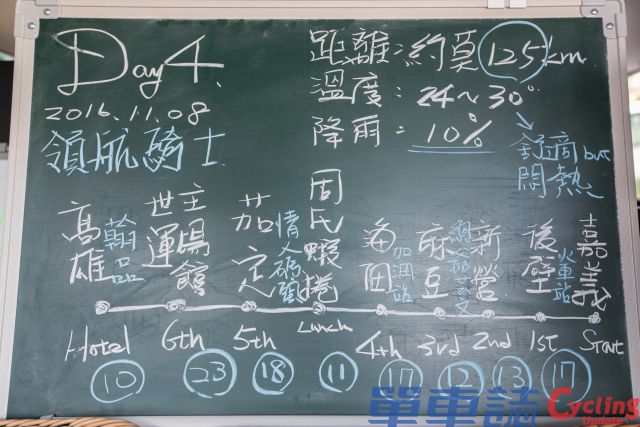 Day 4.
2016.11.08
領航騎士
距離:約莫125km
溫度:24~30°
降雨:10%
舒適but
悶熱
高雄
翰品
世運
主場館
茄定
情人碼頭
周氏蝦捲
番田
加油站
麻豆
新營
後壁
火車站
嘉義
Hotel 6th 5th Lunch 4th 3rd 2nd 1st Start
10 23 18 11 17 12 13 17
單車誌 Cycling Update